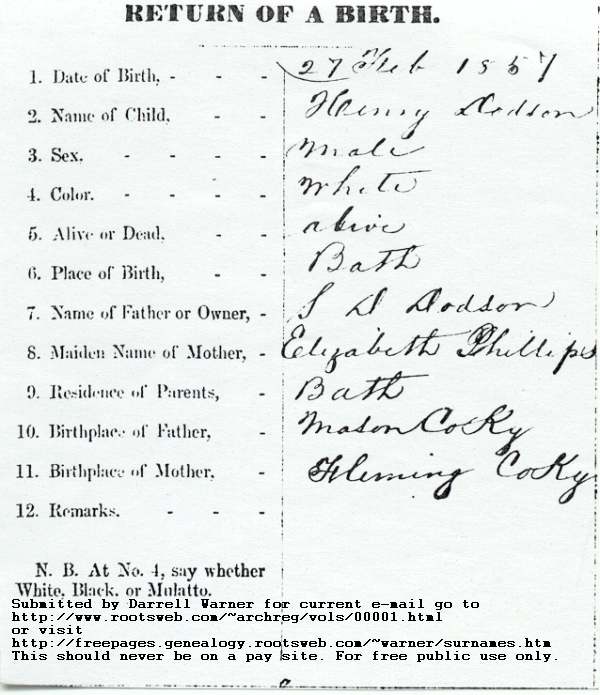 RETURN OF A BIRTH.
1. Date of Birth, - - - 27 Feb 1857
2. Name of Child, - - Henry Dodson
3. Sex, - - - - Male
4. Color. - - - - White
5. Alive or Dead, - - alive
6. Place of Birth, - - Bath
7. Name of Father or Owner, - S D Dodson
8. Maiden Name of Mother, - Elizabeth Phillips
9. Residence of Parents, - Bath
10. Birthplace of Father, - Mason Co Ky
11. Birthplace of Mother, - Fleming Co Ky
12. Remarks. - - -
N. B. At No. 4, say whether
White, Black, or Mulatto.
Submitted by Darrell Warner for current e-mail go to
http://www.rootsweb.com/~archreg/vols/00001.html
or visit
http://freepages.genealogy.rootsweb.com/~warner/surnames.htm
This should never be on a pay site. For free public use only.